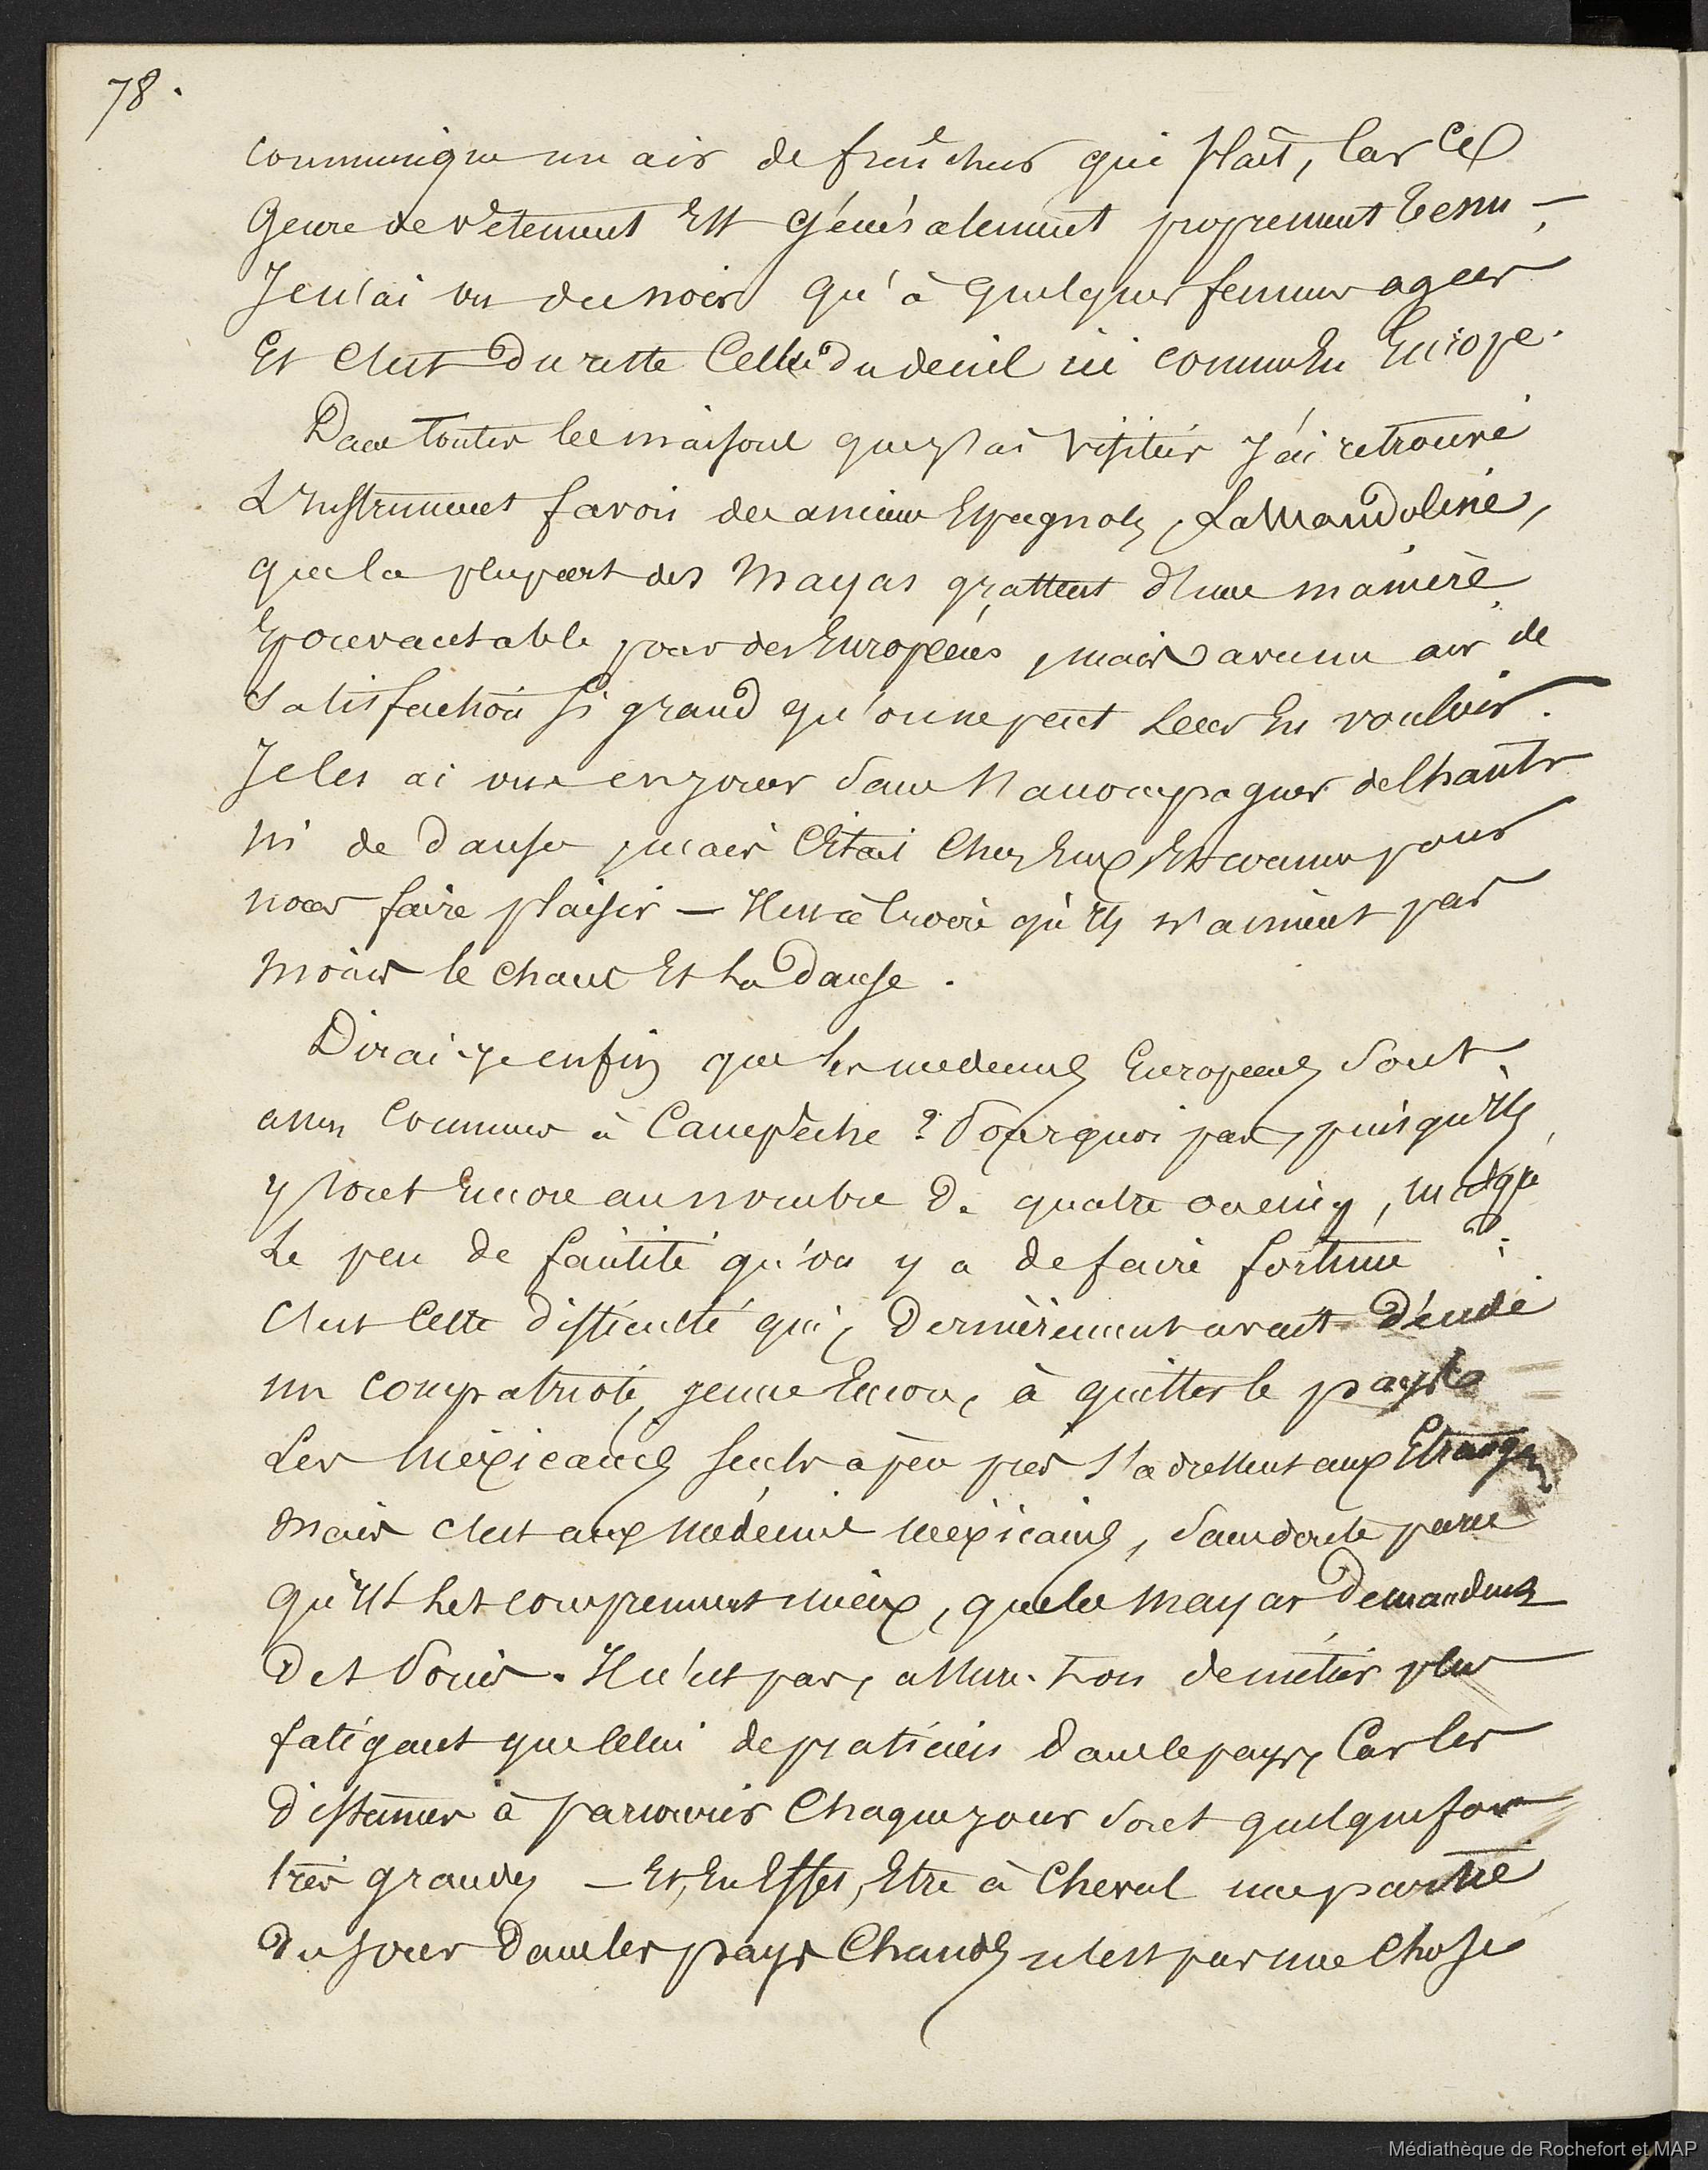 78.
communique un air de fraîcheur qui plaît, Car Ce
Genre de vêtement Est généralement proprement tenu –;
Je n'ai vu du noir qu'à quelques femmes agées
Et C'est du reste Celle du deuil ici comme En Europe.
Dans toutes les maisons que j'ai visitées j'ai retrouvé
L'Instrument favori des anciens Espagnols, La Mandoline,
que la plupart des Mayas grattent d'une manière
Epouvantable pour des Européens, mais avec un air de
satisfaction si grand qu'on ne peut Leur En vouloir.
Je les ai vus en jouer sans s'accompagner de Chants
ni de danses, mais C'était Chez Eux, Et comme pour
nous faire plaisir – Il est à croire qu'Ils n'aiment pas
moins le chant Et La Danse.
Dirai-je enfin que les medecins Européens sont
assez Communs à Campêche ? Pourquoi pas, puisqu'Ils
y sont Encore au nombre de quatre ou cinq, malgré
Le peu de facilité qu'on y a de faire fortune ;
C'est Cette difficulté qui, Dernièrement avait décidé
un Compatriote, jeune Encore, à quitter le pays
Les Méxicains seuls à peu près s'adressent aux Etrangers
mais c'est aux médecins méxicains, sans doute parce
qu'Ils les comprennent mieux, que les Mayas Demandent
Des Soins. Il n'est pas, assure-t-on de métier plus
fatigant que Celui de praticien dans le pays, Car les
distances à parcourir Chaque jour sont quelquefois
très grandes – Et, En Effet, Etre à Cheval une partie
Du jour Dans les pays Chauds n'est pas une Chose
Médiathèque de Rochefort et MAP